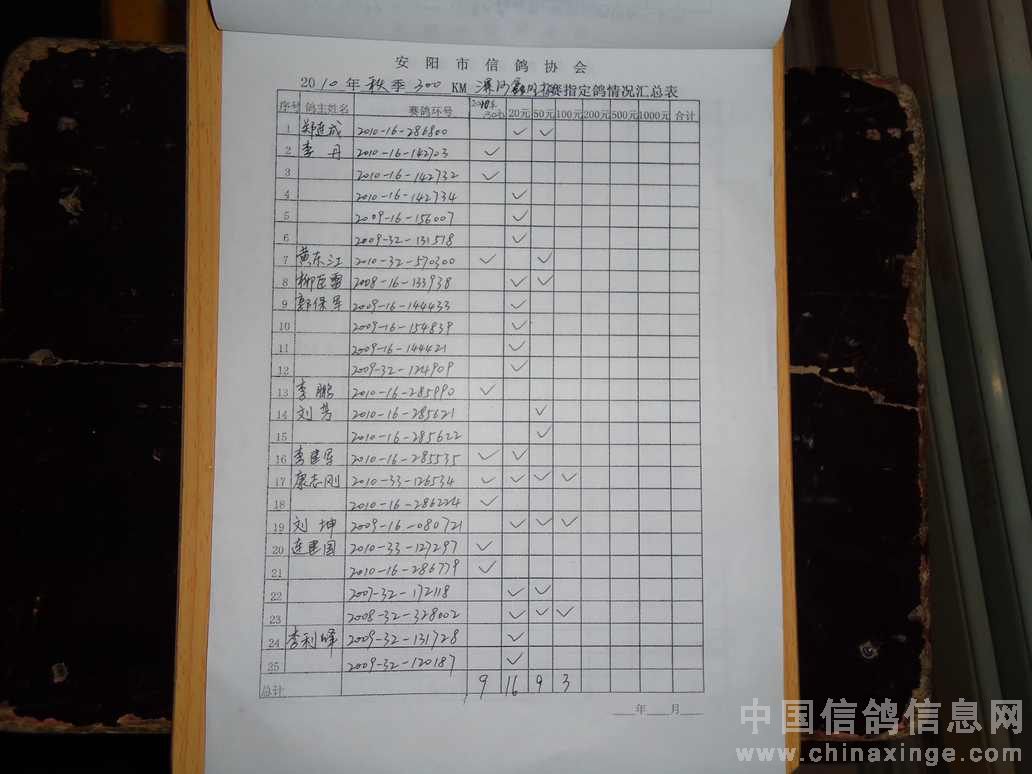 安阳市信鸽协会
2010年秋季300KM 指定鸽情况汇总表
序号 鸽主姓名 赛鸽环号 20元 50元 100元 200元 500元 1000元 合计
1 2010-16-286800 ✓ ✓
2 李丹 2010-16-142703 ✓
3 2010-16-142732 ✓
4 2010-16-142734 ✓
5 2009-16-156007 ✓
6 2009-32-131578 ✓
7 黄东江 2010-32-570300 ✓ ✓
8 柳臣雷 2008-16-133938 ✓ ✓
9 郭保军 2009-16-144433 ✓
10 2009-16-154839 ✓
11 2009-16-144421 ✓
12 2009-32-124909 ✓
13 李鹏 2010-16-285990 ✓
14 刘芳 2010-16-285621 ✓
15 2010-16-285622 ✓
16 李建军 2010-16-285535 ✓ ✓
17 康志刚 2010-33-126534 ✓ ✓ ✓ ✓
18 2010-16-286224 ✓
19 刘坤 2009-16-080721 ✓ ✓ ✓
20 连建国 2010-33-127297 ✓
21 2010-16-286779 ✓
22 2007-32-172118 ✓ ✓
23 2008-32-328002 ✓ ✓ ✓
24 李利峰 2009-32-131728 ✓
25 2009-32-120187 ✓
总计 9 16 9 3
年 月
中国信鸽信息网
www.chinaxinge.com